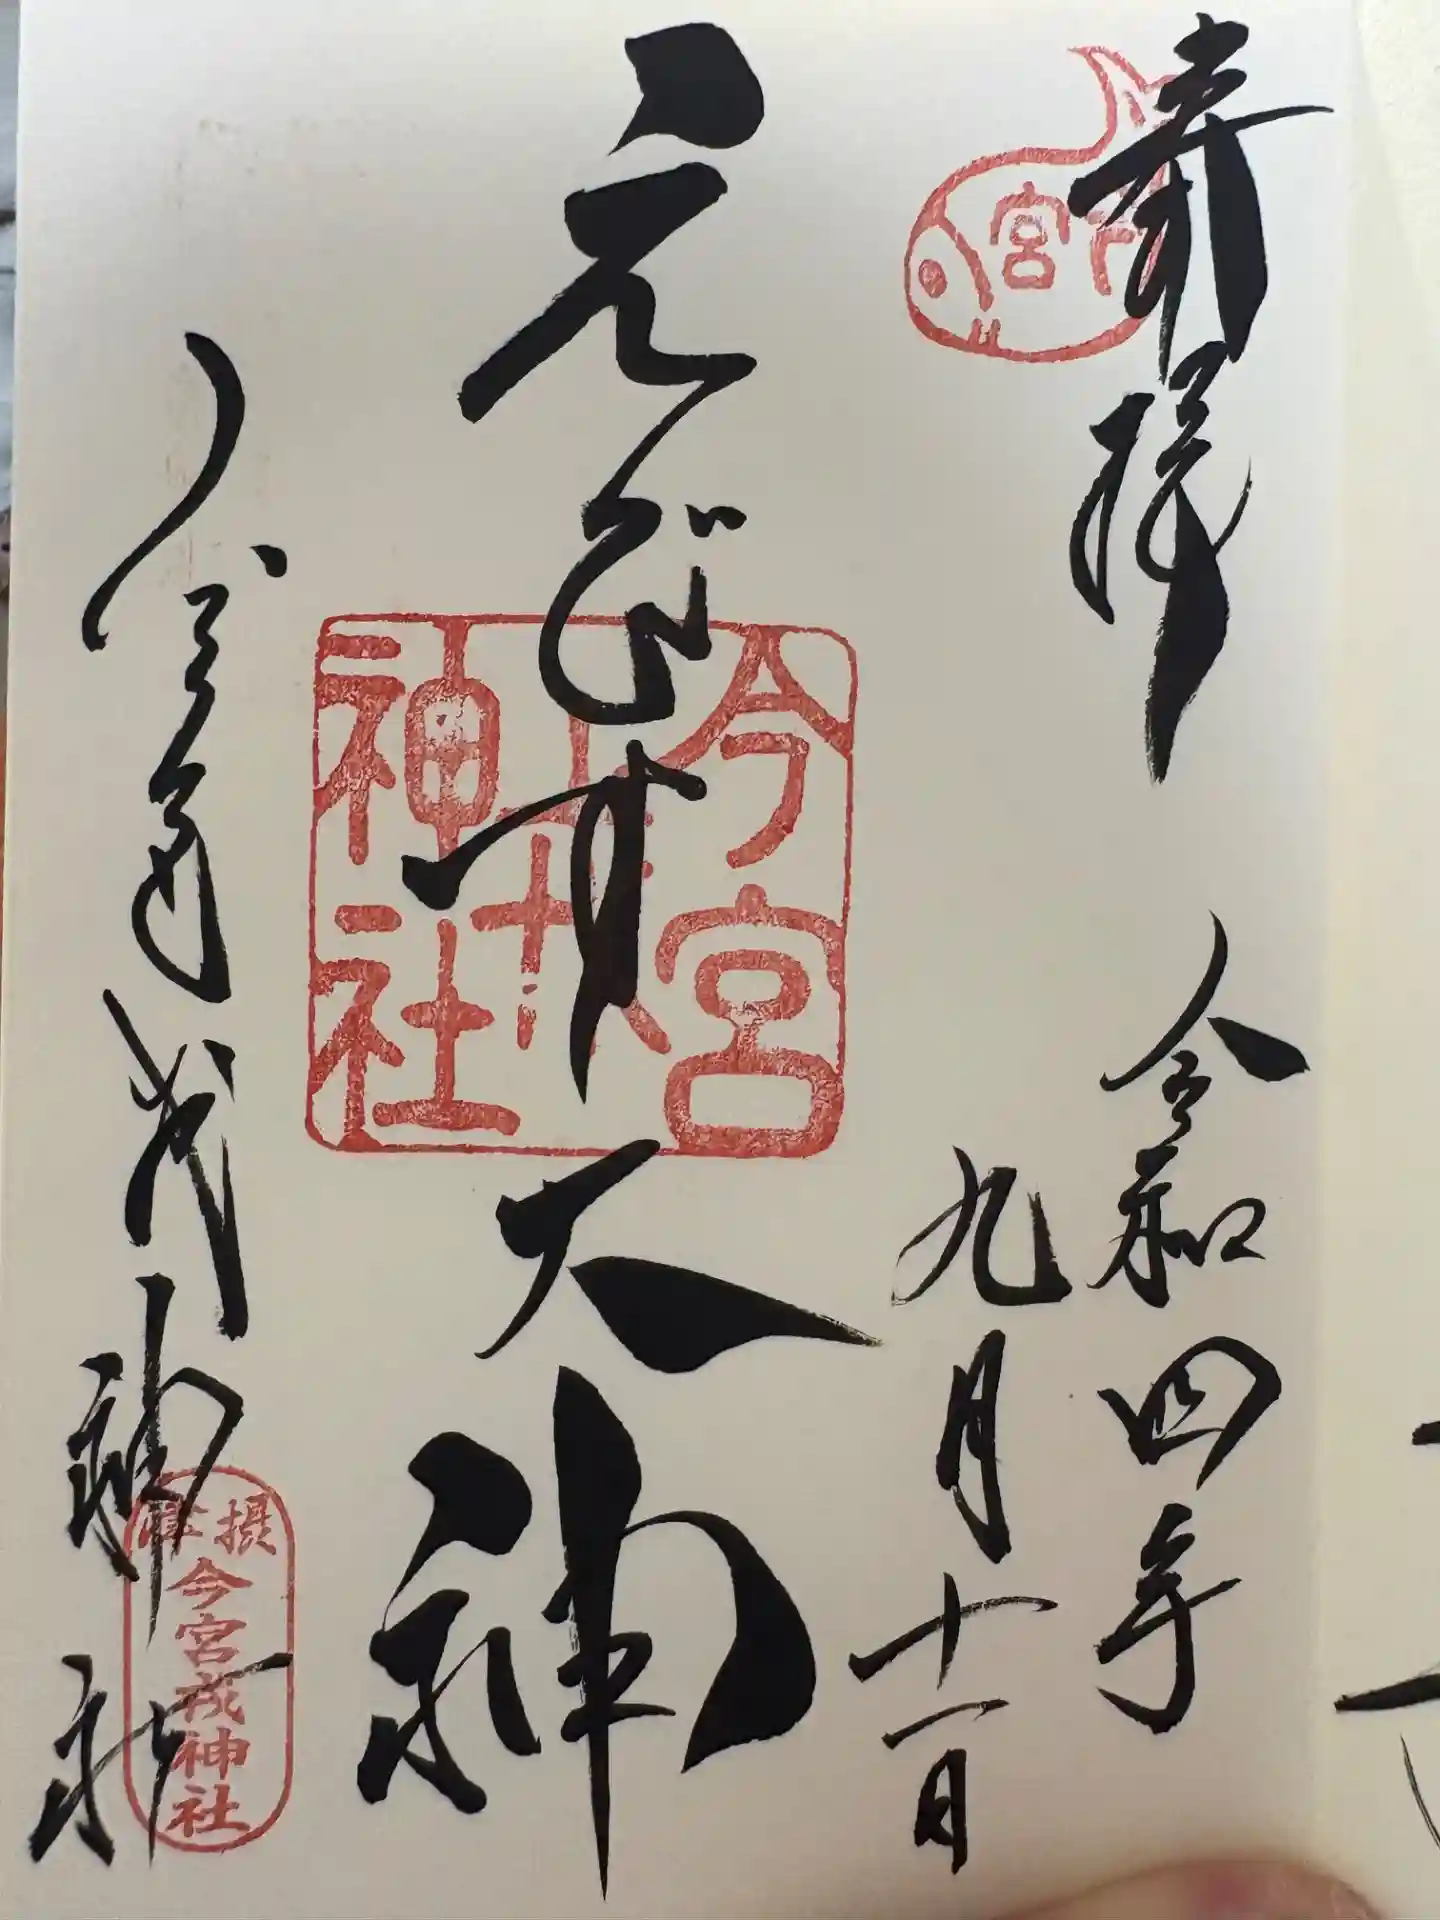 奉拝
令和四年
九月十一日
えびす大神
今宮戎神社
今宮
今宮戎神社
摂津
今宮戎神社